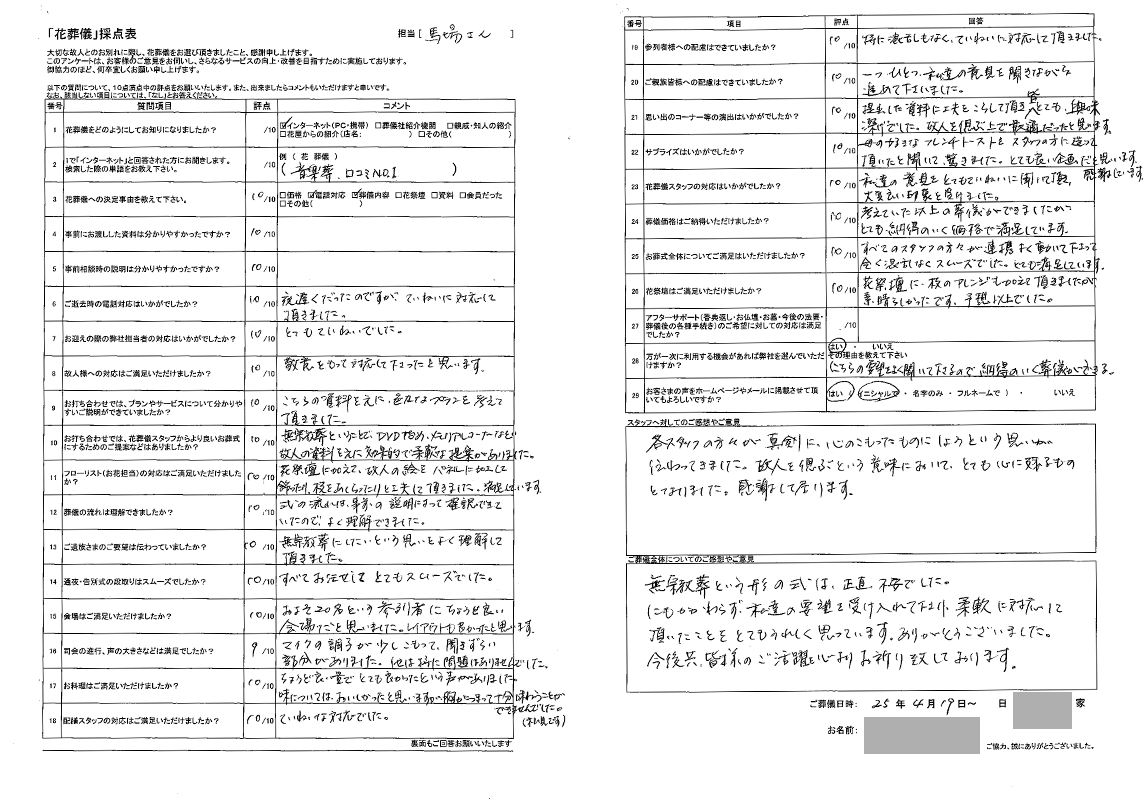 「花葬儀」採点表
担当[ 馬場さん ]
大切な故人とのお別れに際し、花葬儀をお選び頂きましたこと、感謝申し上げます。
このアンケートは、お客様のご意見をお伺いし、さらなるサービスの向上・改善を目指すために実施しております。
御協力のほど、何卒宜しくお願い申し上げます。
以下の質問について、10点満点中の評点をお願いします。また、出来ましたらコメントもいただけますと幸いです。
なお、該当しない項目については、「なし」とお答えください。
番号 質問項目 評点 コメント
1 花葬儀をどのようにしてお知りになりましたか? /10 ☑インターネット(PC・携帯) □葬儀社紹介機関 □親戚・知人の紹介
□花屋からの紹介(店名: ) □その他( )
2 1で「インターネット」と回答された方にお聞きします。
検索した際の単語をお教え下さい。 /10 例( 花 葬儀 )
( 音楽葬、口コミNO.1 )
3 花葬儀への決定事由を教えて下さい。 10/10 □価格 ☑電話対応 ☑葬儀内容 □花祭壇 □資料 □会員だった
□その他( )
4 事前にお渡しした資料は分かりやすかったですか? 10/10
5 事前相談時の説明は分かりやすかったですか? 10/10
6 ご逝去時の電話対応はいかがでしたか? 10/10 夜遅くだったのですが、ていねいに対応して
頂きました。
7 お迎えの際の弊社担当者の対応はいかがでしたか? 10/10 とてもていねいでした。
8 故人様への対応はご満足いただけましたか? 10/10 敬意をもって対応して下さったと思います。
9 お打ち合わせでは、プランやサービスについて分かりや
すいご説明ができていましたか? 10/10 こちらの資料を元に、色々なプランを考えて
頂きました。
10 お打ち合わせでは、花葬儀スタッフからより良いお葬式
にするためのご提案などはありましたか? 10/10 無宗教葬ということで、DVD始め、メモリアルコーナーなど
故人の資料を元に効果的で柔軟な提案がありました。
11 フローリスト(お花担当)の対応はご満足いただけました
か? 10/10 花祭壇に加えて、故人の絵をパネルに加工して
飾ったり、枝をあしらったりと工夫して頂きました。満足しています。
12 葬儀の流れは理解できましたか? 10/10 式の流れは、事前の説明によって確認できて
いたので、よく理解できました。
13 ご遺族さまのご要望は伝わっていましたか? 10/10 無宗教葬にしたいという思いをよく理解して
頂きました。
14 通夜・告別式の段取りはスムーズでしたか? 10/10 すべてお任せして とてもスムーズでした。
15 会場はご満足いただけましたか? 10/10 およそ20名という参列者にちょうど良い
会場だと思いました。レイアウトも良かったと思います。
16 司会の進行、声の大きさなどは満足でしたか? 9/10 マイクの調子が少しこもって、聞きずらい
部分がありました。他は特に問題はありませんでした。
17 お料理はご満足いただけましたか? 10/10 ちょうど良い量でとても良かったという声がありました。
味については、おいしかったと思いますが、胸がつまって十分味わうことが
できませんでした。
(私見です)
18 配膳スタッフの対応はご満足いただけましたか? 10/10 ていねいな対応でした。
裏面もご回答お願いいたします
番号 項目 評点 回答
19 参列者様への配慮はできていましたか? 10/10 特に混乱もなく、ていねいに対応して頂きました。
20 ご親族皆様への配慮はできていましたか? 10/10 一つひとつ、私達の意見を聞きながら
進めて下さいました。
21 思い出のコーナー等の演出はいかがでしたか? 10/10 提出した資料に工夫をこらして頂き、皆とても、興味
深げでした。故人を偲ぶ上で最適だったと思います。
22 サプライズはいかがでしたか? 10/10 母の好きなフレンチトーストをスタッフの方に造って
頂いたと聞いて、驚きました。とても良い企画だと思います。
感謝しています。
23 花葬儀スタッフの対応はいかがでしたか? 10/10 私達の意見をとてもていねいに聞いて頂き、
大変良い印象を受けました。
24 葬儀価格はご納得いただけましたか? 10/10 考えていた以上の葬儀ができましたから
とても納得のいく価格で満足しています。
25 お葬式全体についてご満足はいただけましたか? 10/10 すべてのスタッフの方々が連携よく動いて下さって
全く混乱なくスムーズでした。とても満足しています。
26 花祭壇はご満足いただけましたか? 10/10 花祭壇に、枝のアレンジも加えて頂きましたが
素晴らしかったです。予想以上でした。
27 アフターサポート(香典返し・お仏壇・お墓・今後の法要・
葬儀後の各種手続き)のご希望に対しての対応は満足
でしたか? /10
28 万が一次に利用する機会があれば弊社を選んでいただ
けますか? はい ・ いいえ
その理由を教えて下さい
こちらの要望をよく聞いて下さるので、納得のいく葬儀ができる。
29 お客さまの声をホームページやメールに掲載させて頂
いてもよろしいですか? はい ( イニシャルで ・ 名字のみ ・ フルネームで ) ・ いいえ
スタッフへ対してのご感想やご意見
各スタッフの方々が真剣に、心のこもったものにしようという思いが
伝わってきました。故人を偲ぶという意味において、とても心に残るもの
となりました。感謝して居ります。
ご葬儀全体についてのご感想やご意見
無宗教葬という形の式は、正直 不安でした。
にもかかわらず、私達の要望を受け入れて下さり、柔軟に対応して
頂いたことを とてもうれしく思っています。ありがとうございました。
今後共、皆様のご活躍を心よりお祈り致しております。
ご葬儀日時: 25 年 4 月 19 日~ 日 家
お名前:
ご協力、誠にありがとうございました。